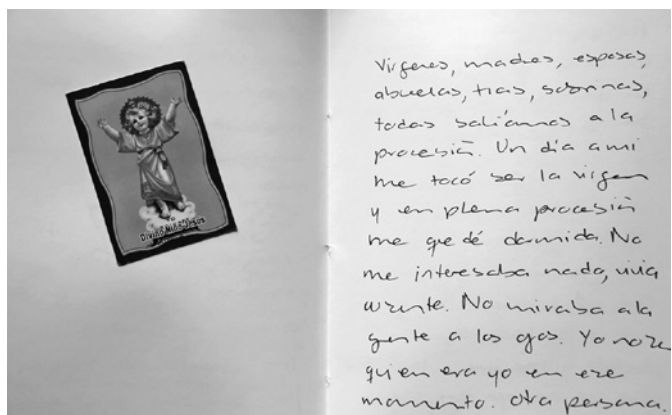 Divino Niño Jesús
Vírgenes, madres, esposas,
abuelas, tías, sobrinas,
todas salíamos a la
procesión. Un día a mí
me tocó ser la virgen
y en plena procesión
me quedé dormida. No
me interesaba nada, vivía
ausente. No miraba a la
gente a los ojos. Yo no sé
quien era yo en ese
momento. Otra persona.